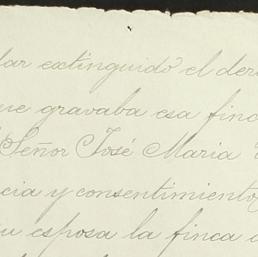 lar extinguido el der
ue gravaba esa finc
Señor José Maria
cia y consentimiento,
su esposa la finca